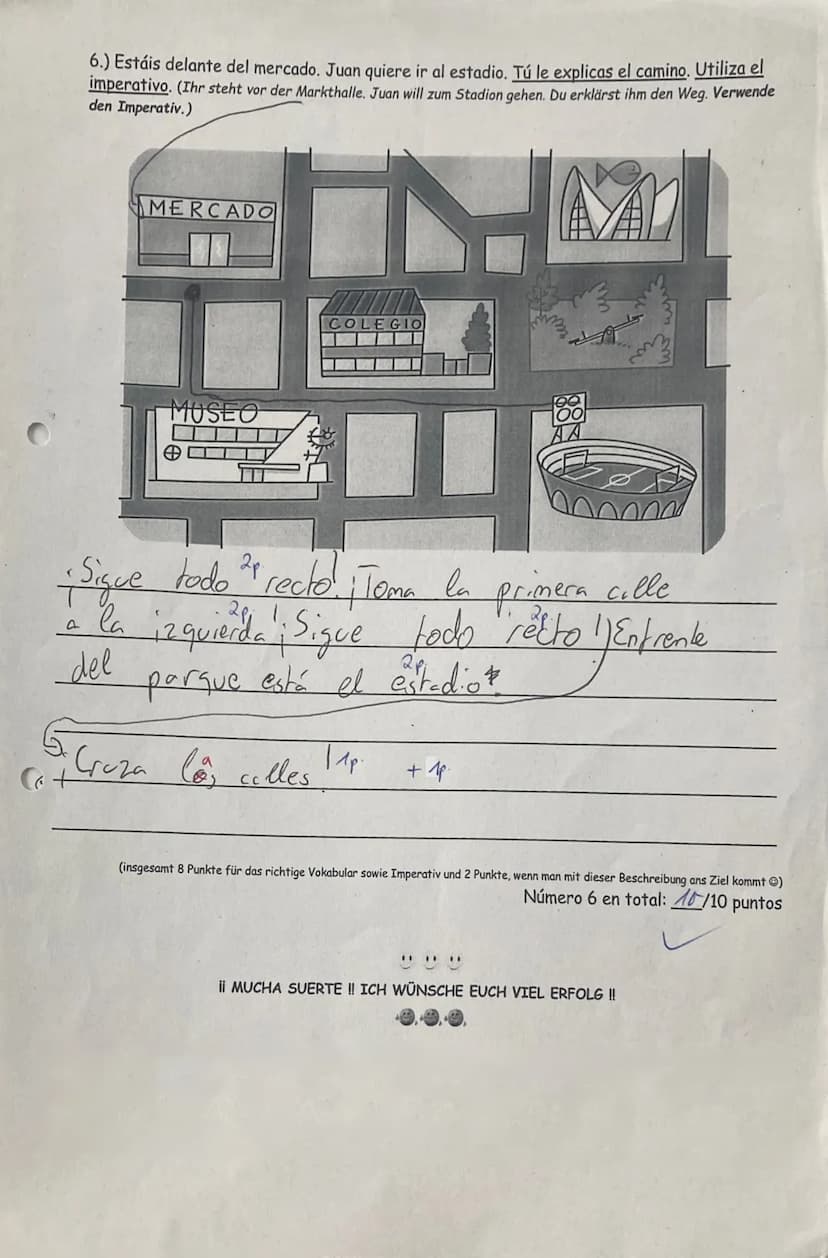 6.) Estáis delante del mercado. Juan quiere ir al estadio. Tú le explicas el camino. Utiliza el
imperativo. (Ihr steht vor der Markthalle. Juan will zum Stadion gehen. Du erklärst ihm den Weg. Verwende
den Imperativ.)
MERCADO
COLEGIO
MUSEO
¡Sigue todo 2p recto! ¡Toma la primera calle
a la izquierda 2p! ¡Sigue todo recto 2p!) Enfrente
del parque está el estadio 2p.
¡Cruza las calles! 1p. + 1p.
(insgesamt 8 Punkte für das richtige Vokabular sowie Imperativ und 2 Punkte, wenn man mit dieser Beschreibung ans Ziel kommt ☺)
Número 6 en total: 10/10 puntos
¡¡ MUCHA SUERTE !! ICH WÜNSCHE EUCH VIEL ERFOLG !!